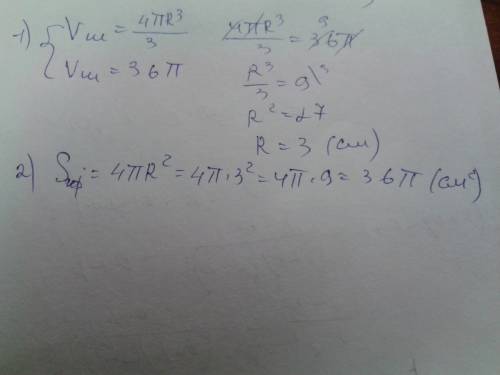 1) { Vш = 4πR³/3
Vш = 36π
4πR³/3 = 36π 9
R³/3 = 9\³
R² = 27
R = 3 (см)
2) Sсф = 4πR² = 4π·3² = 4π·9 = 36π (см²)